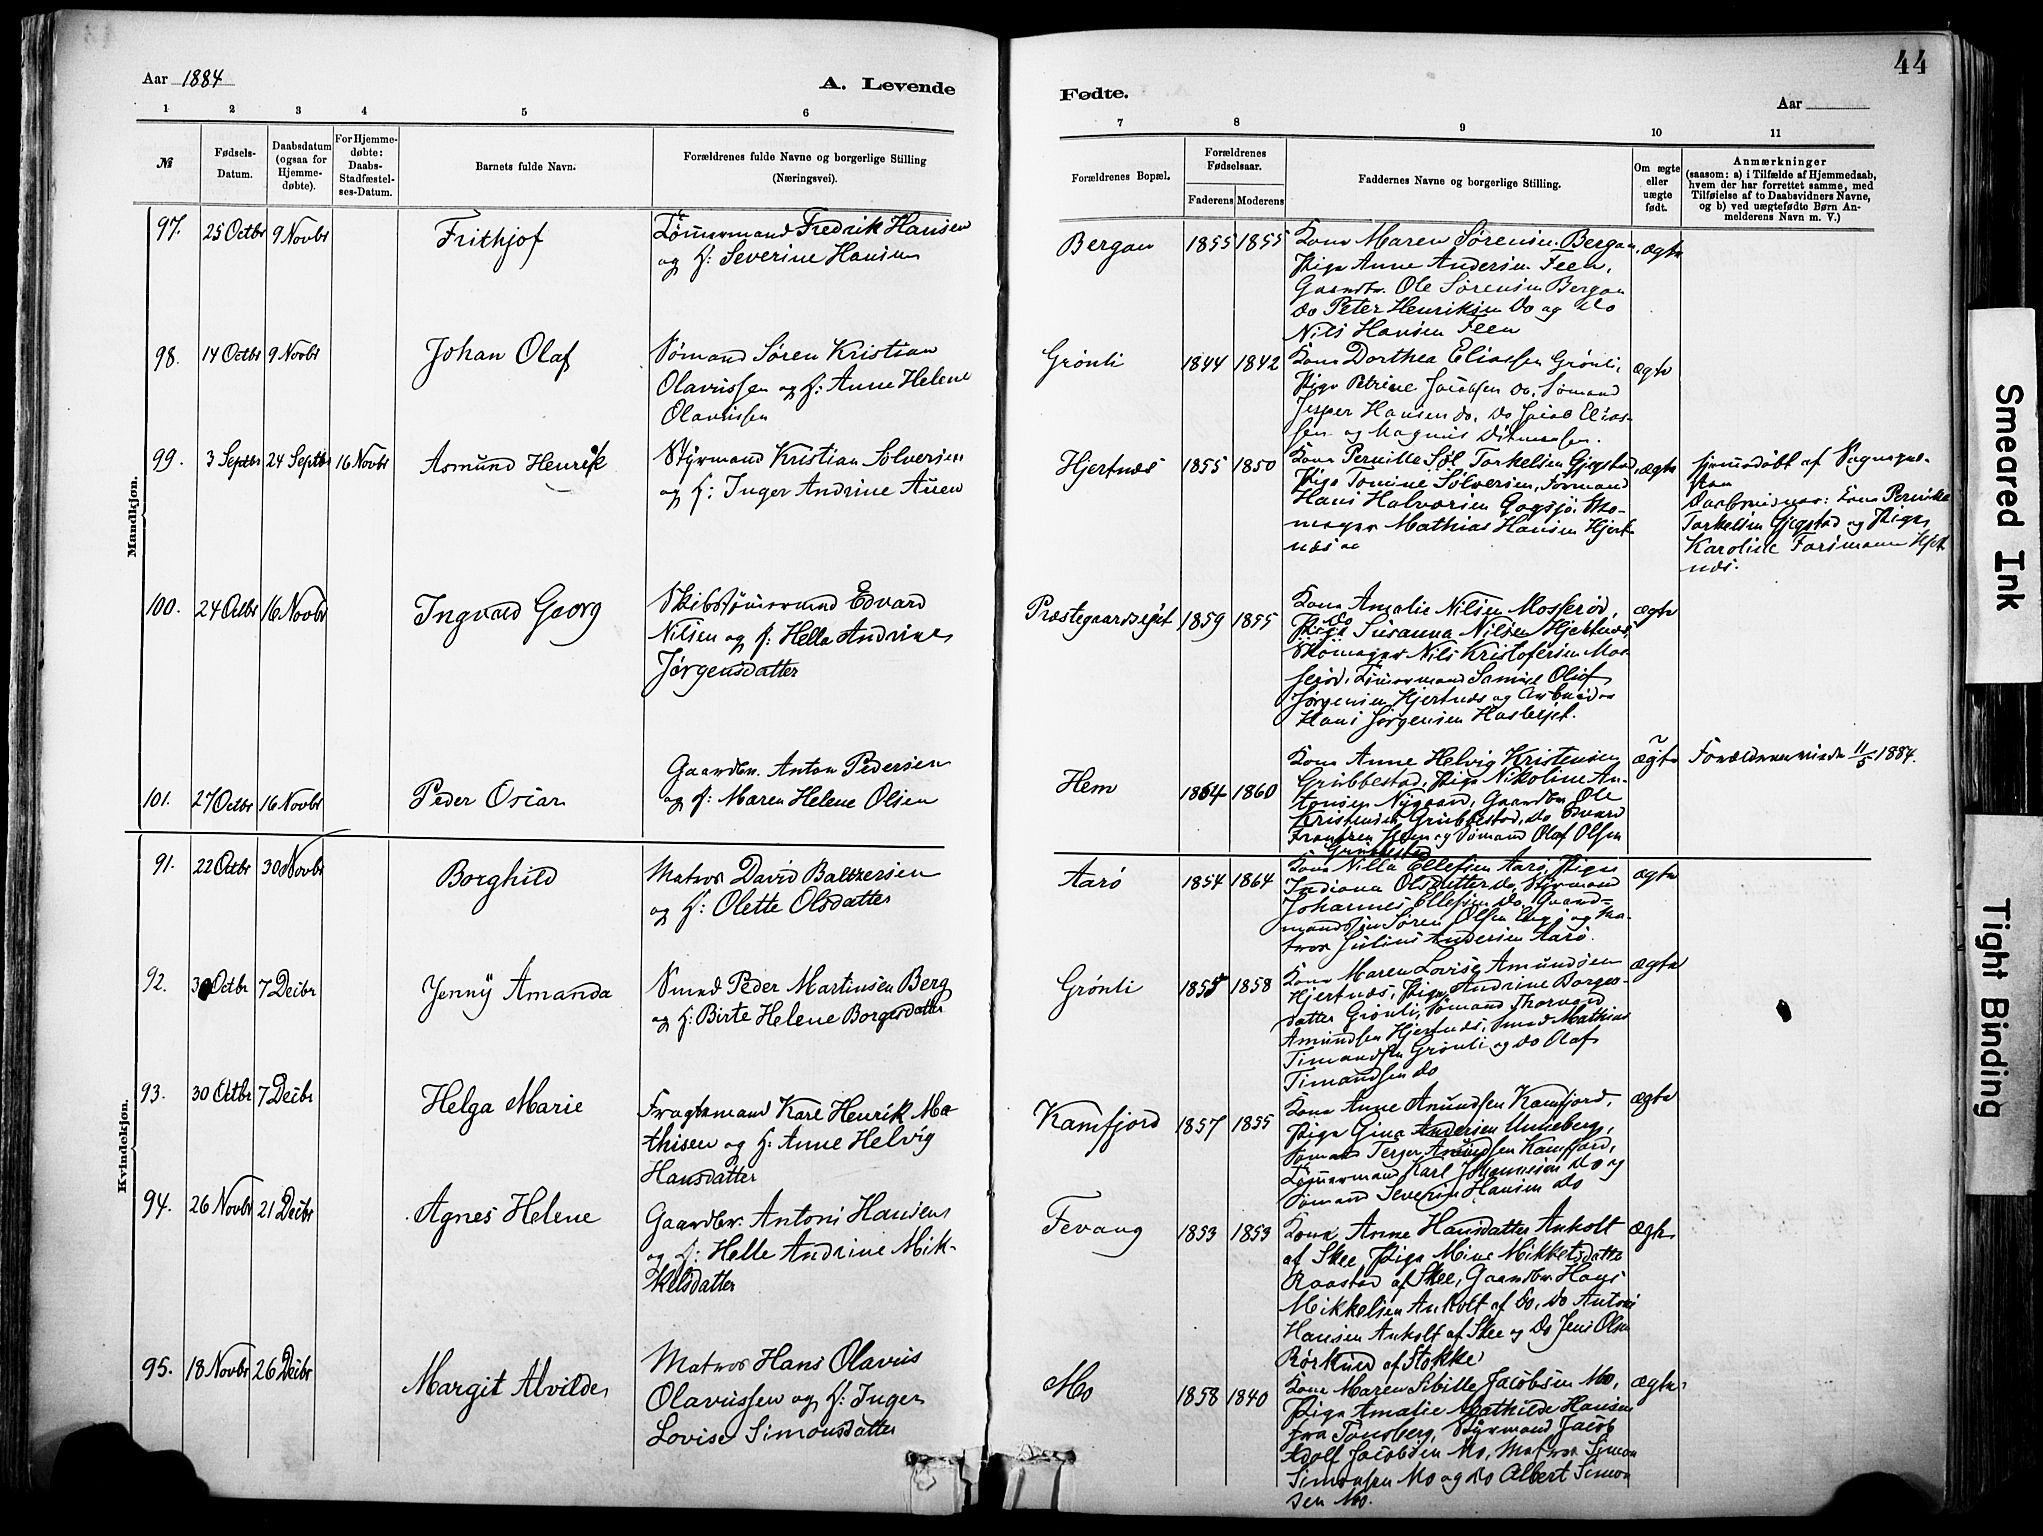 44
Aar 1884
A. Levende
Fødte.
Aar
1 2 3 4 5 6 7 8 9 10 11
№
Fødsels-
Datum.
Daabsdatum
(ogsaa for
Hjemme-
døbte).
For Hjemme-
døbte:
Daabs-
Stadfæstel-
ses-Datum.
Barnets fulde Navn.
Forældrenes fulde Navne og borgerlige Stilling
(Næringsvei).
Forældrenes Bopæl.
Forældrenes
Fødselsaar.
Faderens Moderens
Faddernes Navne og borgerlige Stilling.
Om ægte
eller
uægte
født.
Anmærkninger
(saasom: a) i Tilfælde af Hjemmedaab,
hvem der har forrettet samme, med
Tilføielse af to Daabsvidners Navne,
og b) ved uægtefødte Børn An-
melderens Navn m. V.)
Mandkjøn.
97. 25 Octbr 9 Novbr Frithjof
Tømmermand Fredrik Hansen
og H: Severine Hansen
Bergan 1855 1855
Kone Maren Sørensen Bergan,
Pige Anne Andersen Feen,
Gaardbr. Ole Sørensen Bergan
do Peter Henriksen do og do
Nils Hansen Feen
ægte
98. 14 Octbr 9 Novbr Johan Olaf
Sømand Søren Kristian
Olavussen og H: Anne Helene
Olavussen
Grønli 1844 1842
Kone Dorthea Eliassen Grønli,
Pige Petrine Jacobsen do, Sømand
Jesper Hansen do, do Jacob Elias-
sen og Magnus
ægte
99. 3 Septbr 24 Septbr 16 Novbr Asmund Henrik
Styrmand Kristian Solversen
og H: Inger Andrine Auen
Hjertnæs 1855 1850
Kone Pernille Torkelsen Gjegstad,
Pige Tomine Solversen, Formand
Hans Halvorsen Gogsjø, Sko-
mager Mathias Hansen Hjert-
næs
ægte
Hjemmedøbt af Sogne
Daabsvidner: Kone Pernille
Torkelsen Gjegstad og Pige
Karoline Hjert
næs.
100. 24 Octbr 16 Novbr Ingvald Georg
Skibstømmermand Edvard
Nilsen og H: Helle Andrine
Jørgensdatter
Præstegaardsejet 1859 1855
Kone Amalie Nilsen Mosserød,
do
Pige Susanna Nilsen Hjertnæs,
Skomager Nils Kristofersen Mos-
serød, Tømmermand Samuel Olof
Jørgensen Hjertnæs og Arbeider
Hans Jørgensen Haslejet.
ægte
101. 27 Octbr 16 Novbr Peder Oscar
Gaardbr. Anton Pedersen
og H: Maren Helene Olsen
Hem 1864 1860
Kone Anne Helvig Kristensen
Grubbestad, Pige Nikoline An-
tonsen Nygaard, Gaardbr. Ole
Kristensen Grubbestad, do Edvard
Frantzen Hem og Sømand Olaf Olsen
Grubbestad
ægte
Forældrene viede 11/5 1884.
Kvindekjøn.
91. 22 Octbr 30 Novbr Borghild
Matros David Baltzersen
og H: Olette Olsdatter
Aarø 1854 1864
Kone Nilla Ellefsen Aarø, Pige
Indiana Olsdatter do, Styrmand
Johannes Ellefsen do, Gaard-
mandssøn Søren Olsen Enge og Ma-
tros Julius Andersen Aarø.
ægte
92. 30 Octbr 7 Decbr Jenny Amanda
Smed Peder Martinsen Berg
og H: Birte Helene Borgersdatter
Grønli 1855 1858
Kone Maren Lovise Amundsen
Hjertnæs, Pige Andrine Borgers-
datter Grønli, Sømand Thorvald
Amundsen Hjertnæs, Smed Mathias
Timandsen Grønli og do Olaf
Timandsen do
ægte
93. 30 Octbr 7 Decbr Helga Marie
Fragtemand Karl Henrik Ma-
thisen og H: Anne Helvig
Hansdatter
Kamfjord 1857 1855
Kone Anne Amundsen Kamfjord,
Pige Gina Andersen Unneberg,
Sømand Terger Amundsen Kamfjord,
Tømmermand Karl Johannesen do og
Sømand Severin Hansen do
ægte
94. 26 Novbr 21 Decbr Agnes Helene
Gaardbr. Antoni Hansen
og H: Helle Andrine Mik-
kelsdatter
Fevang 1853 1853
Kone Anne Hansdatter Anholt
af Skee, Pige Mine Mikkelsdatter
Raastad af Skee, Gaardbr. Hans
Mikkelsen Anholt af do, do Antoni
Hansen Anholt af Skee og do Jens Olsen
Rørkuld af Stokke
ægte
95. 18 Novbr 26 Decbr Margit Alvilde
Matros Hans Olavus
Olavussen og H: Inger
Lovise Simonsdatter
Mo 1858 1840
Kone Maren Sibille Jacobsen Mo,
Pige Amalie Mathilde Hansen
fra Tønsberg, Styrmand Jacob
Adolf Jacobsen Mo, Matros Simon
Simonsen Mo og do Albert Simon-
sen Mo.
ægte
Smeared Ink
Tight Binding